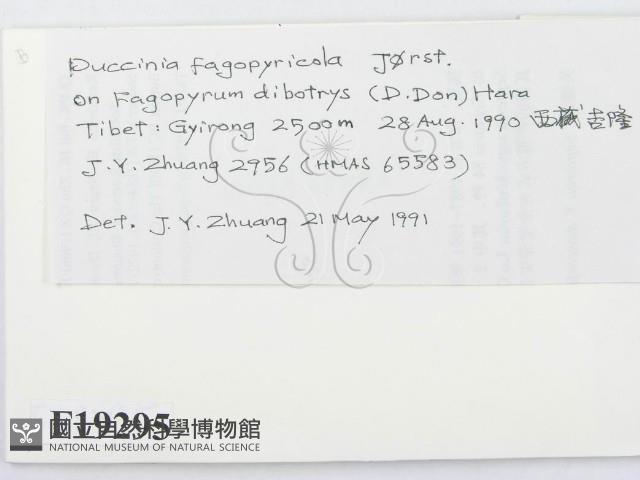 Puccinia fagopyricola Jørst.
on Fagopyrum dibotrys (D.Don) Hara
Tibet: Gyirong 2500m 28 Aug. 1990 西藏吉隆
J.Y. Zhuang 2956 (HMAS 65583)
Det. J.Y. Zhuang 21 May 1991
F19295
國立自然科學博物館
NATIONAL MUSEUM OF NATURAL SCIENCE